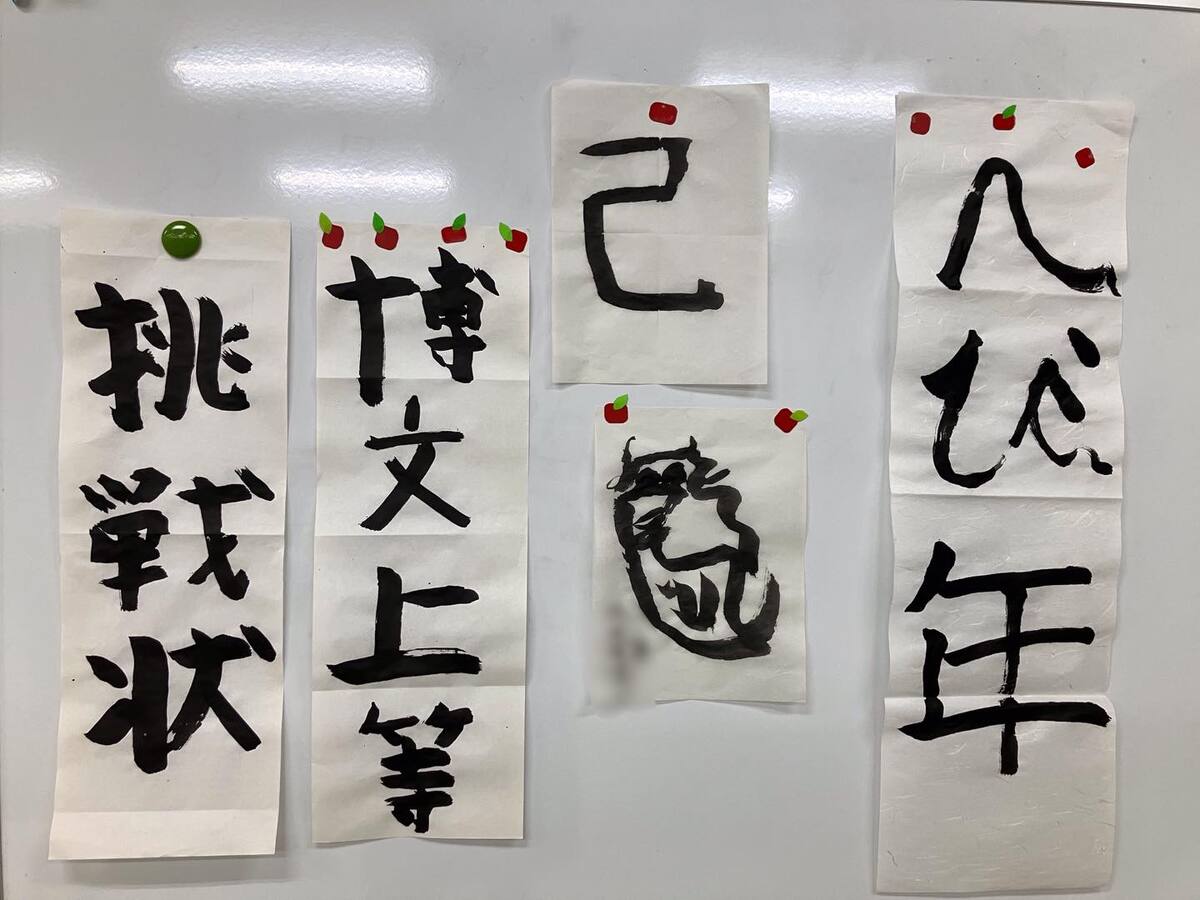 へび年
己
博文上等
挑戦状